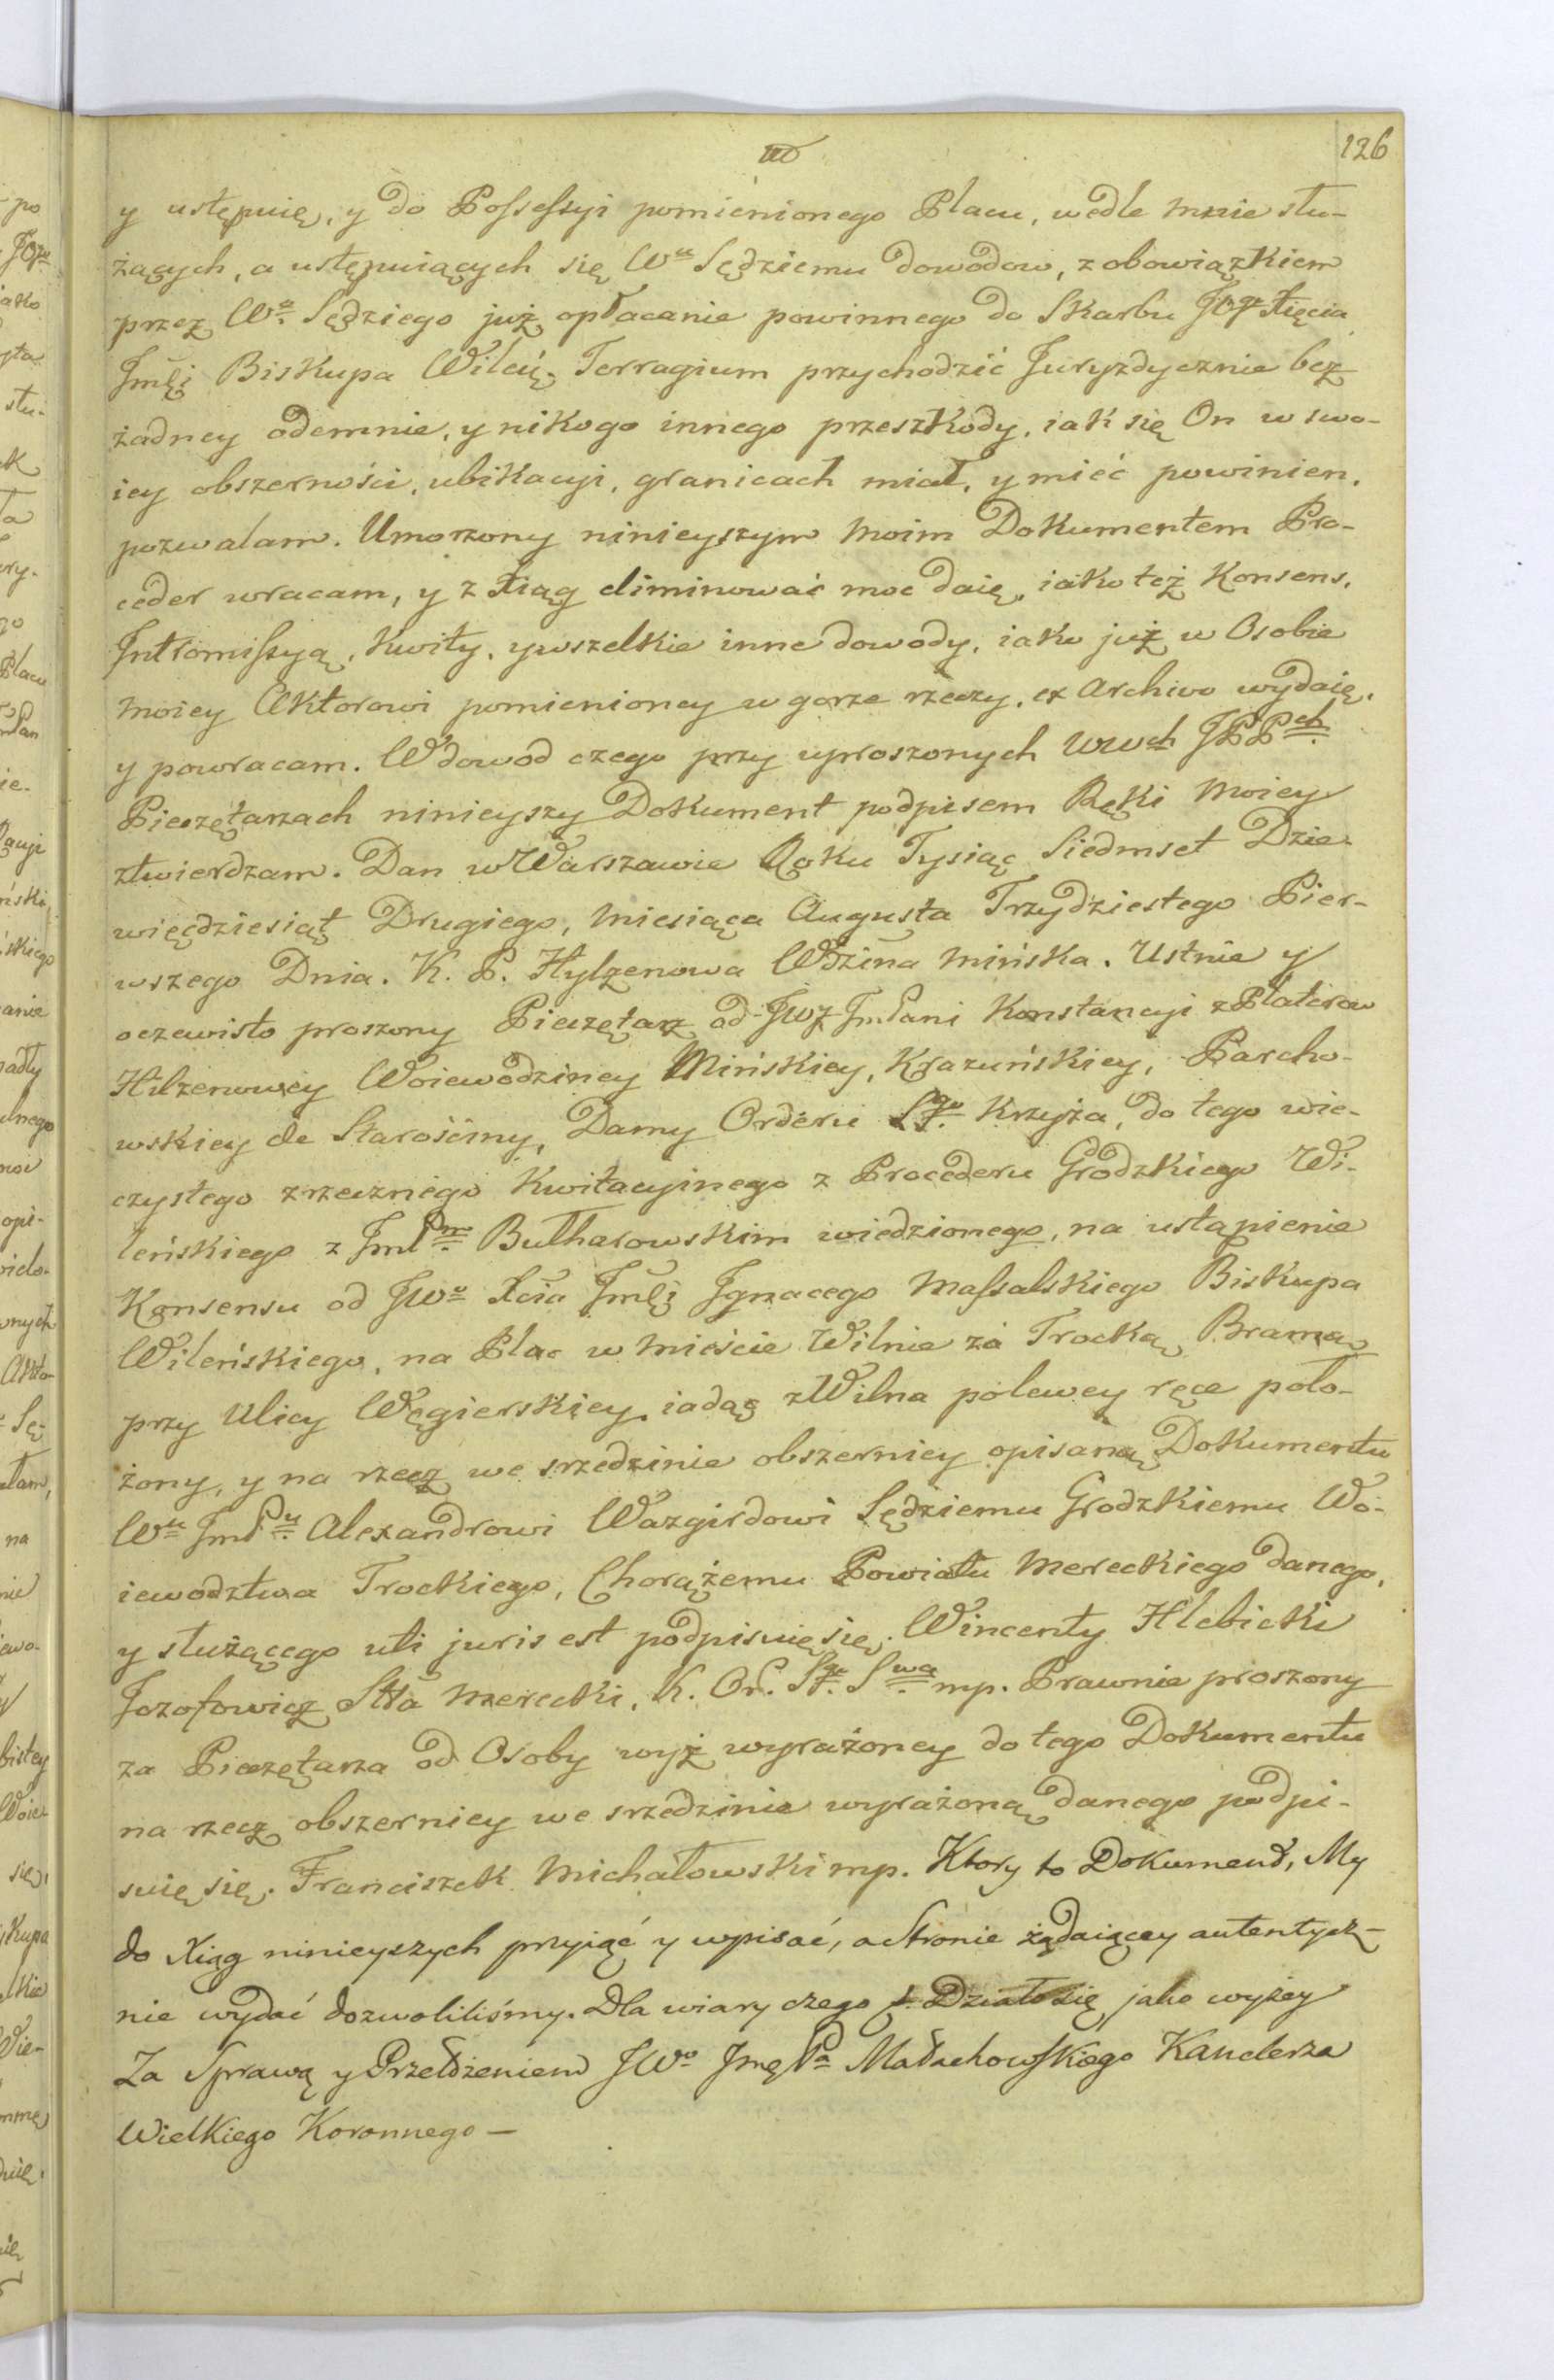 126
y ustępuię, y do Possessyi pomienionego Placu, wedle mnie słu-
żących, a ustępuiących się Wu Sędziemu dowodow, z obowiązkiem
przez Wo Sędziego już opłacanie powinnego do Skarbu JOgo Xięcia
Jmći Biskupa Wileń: Terragium przychodzić Juryzdycznie bez
żadney odemnie, y nikogo innego przeszkody, iak się On w swo-
iey obszerności, ubikacyi, granicach miał, y mieć powinien,
pozwalam. Umorzony ninieyszym moim Dokumentem Pro-
ceder wracam, y z Xiąg eliminować moc daię, iako też Konsens,
Intromissyą, Kwity, y wszelkie inne dowody, iako już w Osobie
moiey Aktorowi pomienioney w gorze rzeczy, ex Archivo wydaię,
y powracam. W dowod czego przy uproszonych WWch JPPch
Pieczętarzach ninieyszy Dokument podpisem Ręki moiey
ztwierdzam. Dan w Warszawie Roku Tysiąc Siedmset Dzie-
więćdziesiąt Drugiego, miesiąca Augusta Trzydziestego Pier-
wszego Dnia. K. P. Hylzenowa Wdzina Mińska. Ustnie y
oczewisto proszony Pieczętarz od JWJ JmPani Konstancyi z Platerow
Hilzenowey Woiewodziney Mińskiey, Krazuńskiey, Parcho-
wskiey &c Starościny, Damy Orderu Sgo Krzyża, do tego wie-
czystego zrzecznego Kwitacyinego z Procederu Grodzkiego Wi-
leńskiego z JmPm Bułharowskim wiedzionego, na ustąpienie
Konsensu od JWo Xcia Jmći Jgnacego Massalskiego Biskupa
Wileńskiego, na Plac w mieście Wilnie za Trocką Bramą
przy Ulicy Węgierskiey, iadąc z Wilna po lewey ręce poło-
żony, y na rzecz we srzedzinie obszerniey opisaną Dokumentu
Wu JmPu Alexandrowi Wazgirdowi Sędziemu Grodzkiemu Wo-
iewodztwa Trockiego, Chorążemu Powiatu Mereckiego danego,
y służącego uti juris est podpisuię się. Wincenty Hlebicki
Jozofowicz Stta Merecki, K. Or. Sgo Swa mp. Prawnie proszony
za Pieczętarza od Osoby wyż wyrażoney do tego Dokumentu
na rzecz obszerniey we srzedzinie wyrażoną danego podpi-
suię się. Franciszek Michałowski mp. Ktory to Dokument, My
do Xiąg ninieyszych przyiąć y wpisać, a Stronie żądaiącey autentycz-
nie wydać dozwoliliśmy. Dla wiary czego &. Działo się jako wyżey
Za Sprawą y Przełożeniem JWo Jmę Pa Małachowskiego Kanclerza
Wielkiego Koronnego —